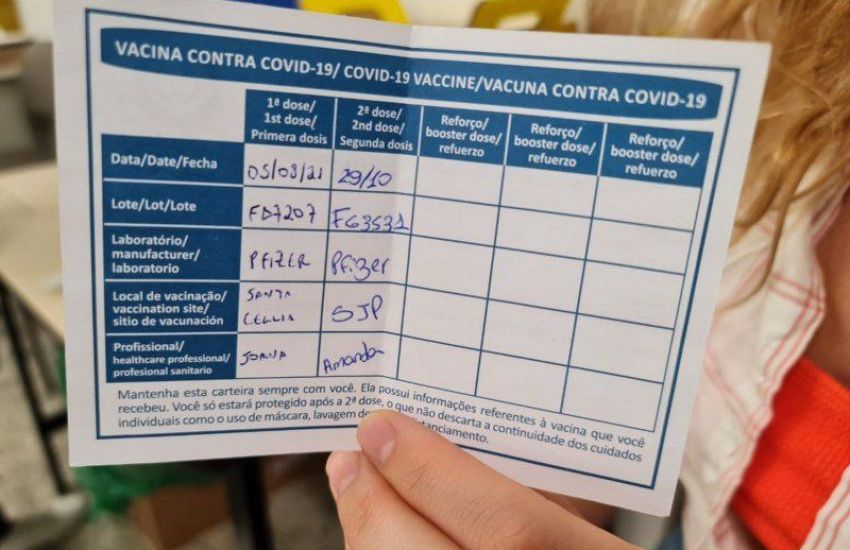 VACINA CONTRA COVID-19/ COVID-19 VACCINE/VACUNA CONTRA COVID-19
1ª dose/
1st dose/
Primera dosis
2ª dose/
2nd dose/
Segunda dosis
Reforço/
booster dose/
refuerzo
Reforço/
booster dose/
refuerzo
Reforço/
booster dose/
refuerzo
Data/Date/Fecha
05/08/21
29/10
Lote/Lot/Lote
FD7207
FG3531
Laboratório/
manufacturer/
laboratorio
PFIZER
Pfizer
Local de vacinação/
vaccination site/
sitio de vacunación
SANTA
SJP
Profissional/
healthcare professional/
profesional sanitario
Amanda
Mantenha esta carteira sempre com você. Ela possui informações referentes à vacina que você
recebeu. Você só estará protegido após a 2ª dose, o que não descarta a continuidade dos cuidados
individuais como o uso de máscara, lavagem